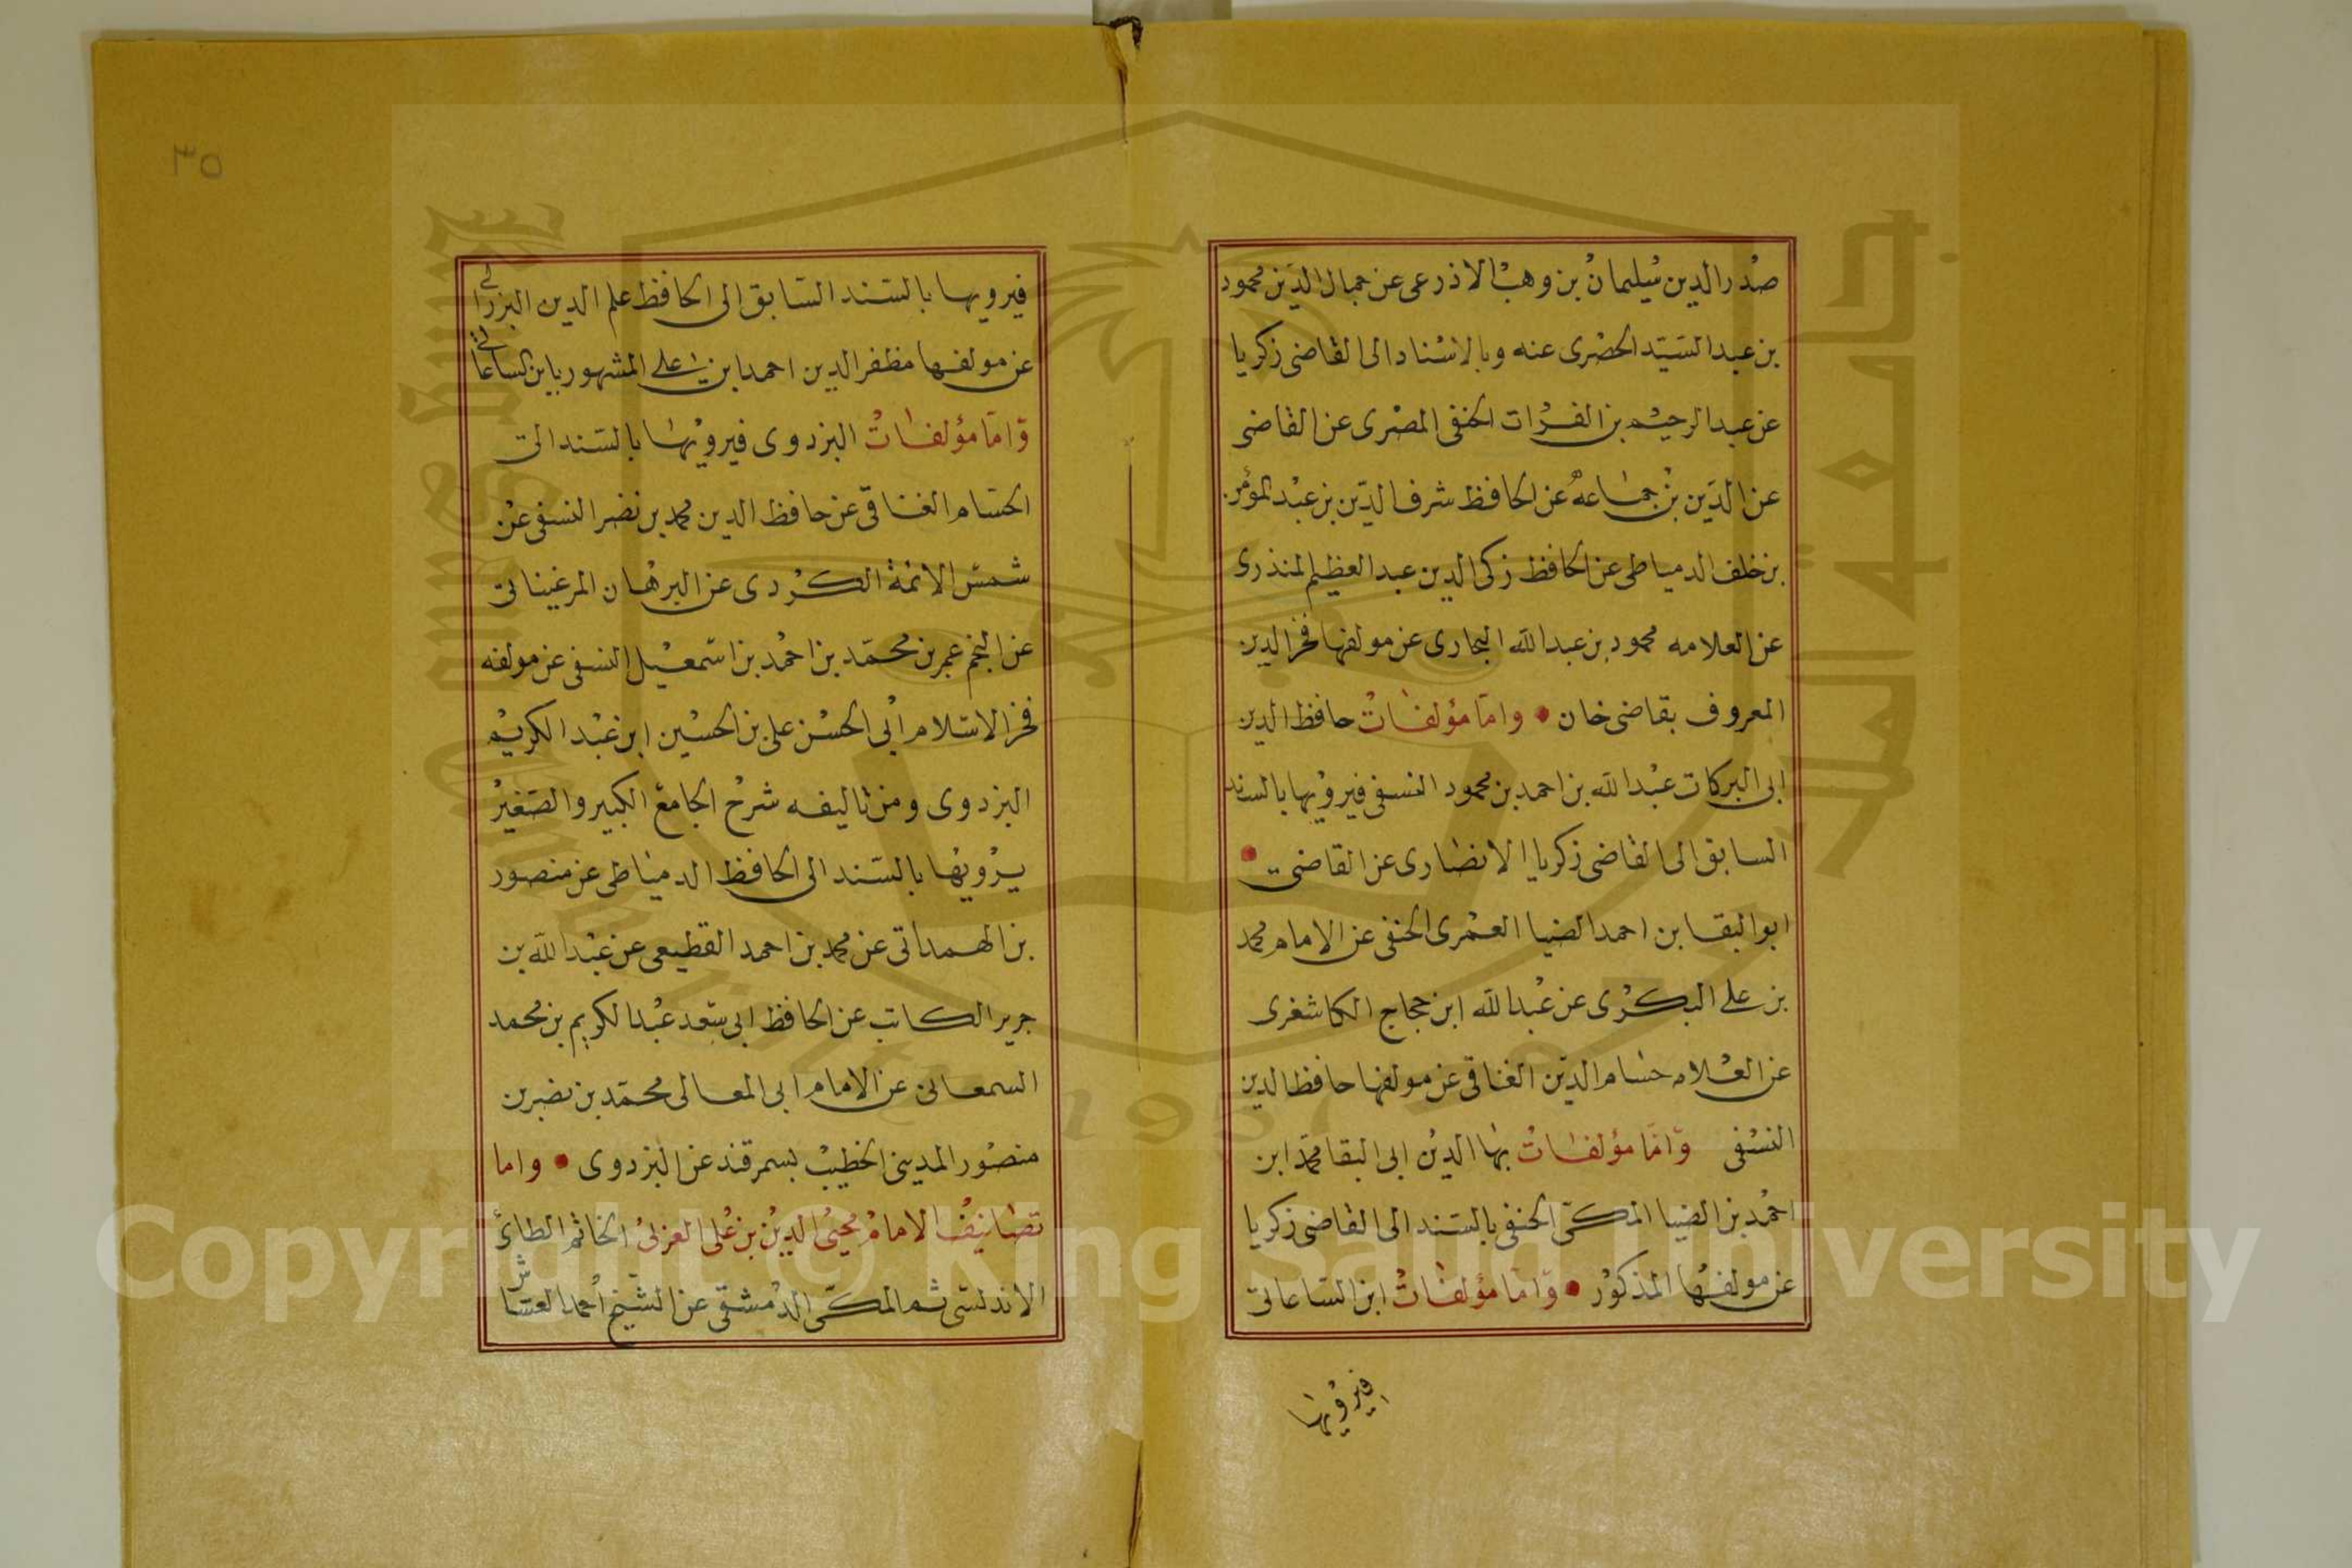 صدر الدين سليمان بن وهب الاذرعى عن جمال الدين محمود
بن عبد السيد الحضرى عنه وبالاسناد الى القاضى زكريا
عن عبد الرحيم بن الفرات الحنفى المصرى عن القاضى
عن الدين بن جماعه عن الحافظ شرف الدين بن عبد المؤمن
بن خلف الدمياطى عن الحافظ زكى الدين عبد العظيم المنذرى
عن العلامه محمود بن عبد الله البخارى عن مولفها فخر الدين
المعروف بقاضى خان • واما مؤلفات حافظ الدين
ابى البركات عبد الله بن احمد بن محمود النسفى فيرويها بالسند
السابق الى القاضى زكريا الانصارى عن القاضى •
ابو البقا بن احمد الضيا العمرى الحنفى عن الامام محمد
بن على البكرى عن عبد الله ابن حجاج الكاشغرى
عن العلامه حسام الدين الغناقى عن مولفها حافظ الدين
النسفى واما مؤلفات بها الدين ابى البقا محمد ابن
احمد بن الضيا المكى الحنفى بالسند الى القاضى زكريا
عن مولفها المذكور • واما مؤلفات ابن الساعاتى
فيرويها
٣٥
فيرويها بالسند السابق الى الحافظ علم الدين البرزالى
عن مولفها مظفر الدين احمد ابن على المشهور بابن الساعاتى
واما مؤلفات البزدوى فيرويها بالسند الى
الحسام الغناقى عن حافظ الدين محمد بن نصر النسفى عن
شمس الائمة الكردى عن البرهان المرغينانى
عن النجم عمر بن محمد بن احمد بن اسمعيل النسفى عن مولفه
فخر الاسلام ابى الحسن على بن الحسين ابن عبد الكريم
البزدوى ومن تاليفه شرح الجامع الكبير والصغير
يرويها بالسند الى الحافظ الدمياطى عن منصور
بن الهمدانى عن محمد بن احمد القطيعى عن عبد الله بن
جرير الكاتب عن الحافظ ابى سعد عبد الكريم بن محمد
السمعانى عن الامام ابى المعالى محمد بن نصر بن
منصور المدينى الخطيب بسمرقند عن البزدوى • واما
تصانيف الامام محيى الدين بن على العربى الحاتم الطائى
الاندلسى ثم المكى الدمشقى عن الشيخ احمد القشاش
Copyright © King Saud University
جامعة الملك
King Saud University
1957